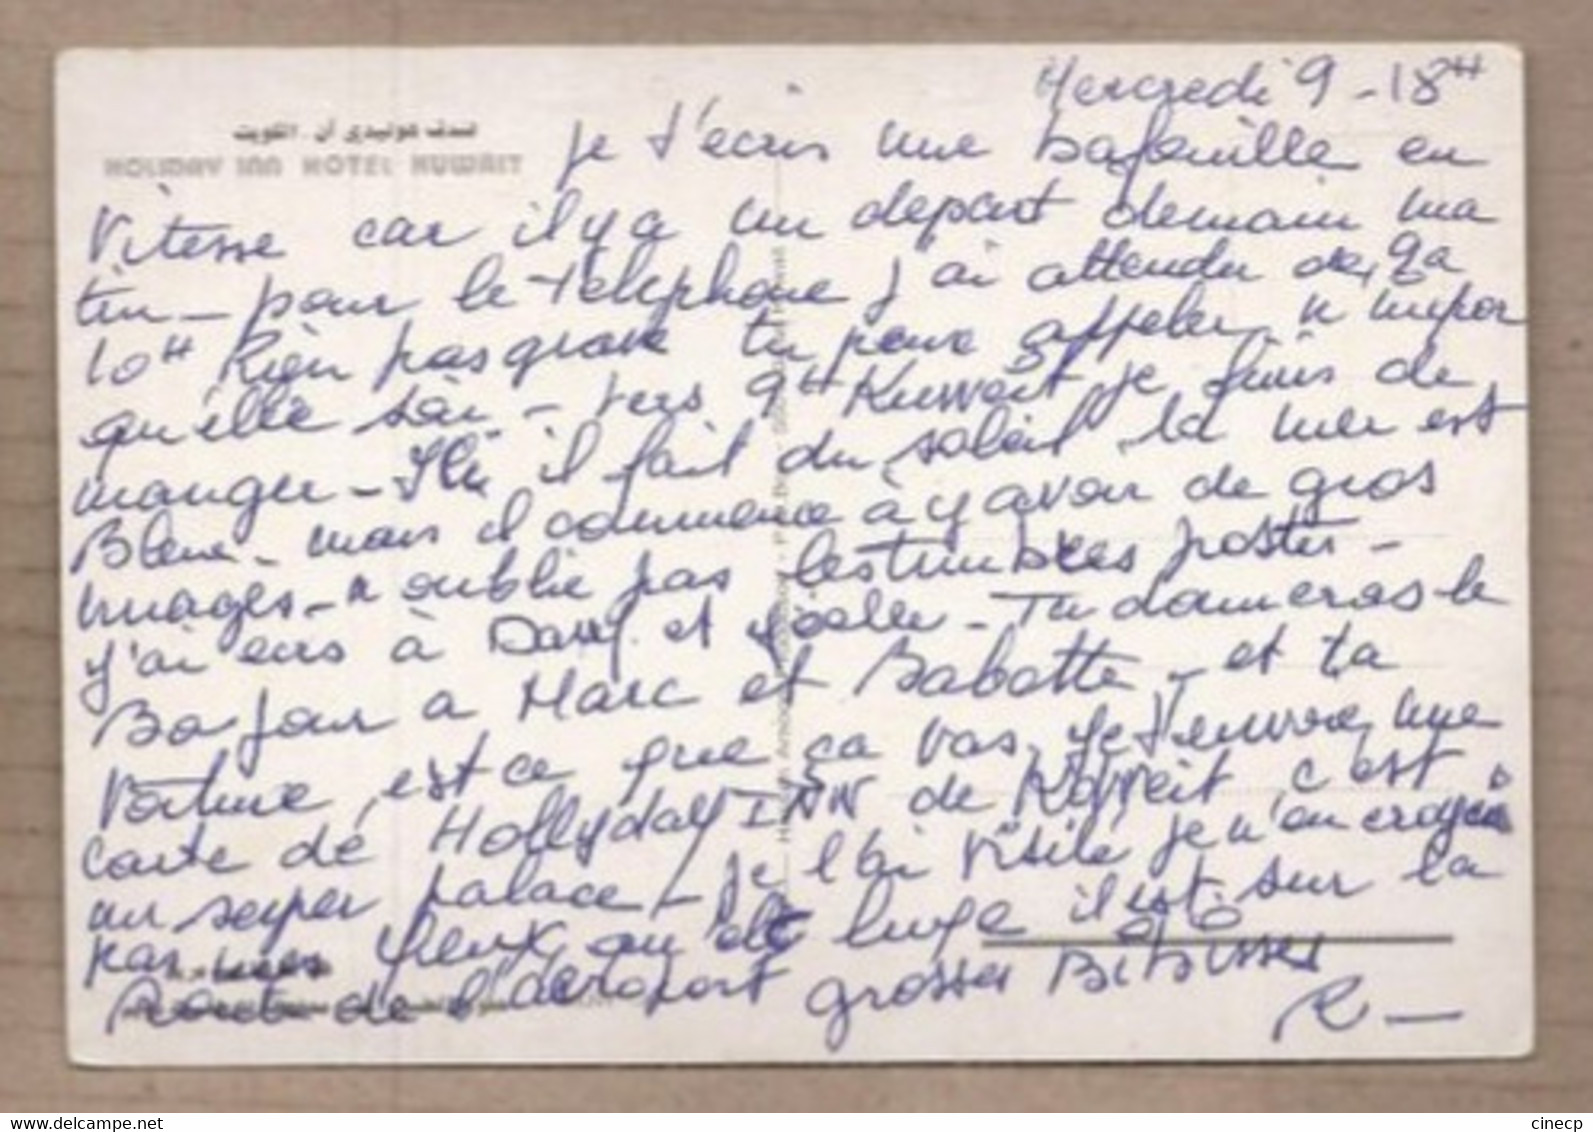 Mercredi 9 - 18H
فندق هوليدي ان . الكويت
HOLIDAY INN HOTEL KUWAIT
je t'écris une bafouille en
vitesse car il y a un depart demain ma
tin - pour le telephone j'ai attendu
10H Rien pas grave tu peux appeler n'impor
qu'elle soir - vers 9H Kuwait je finis de
manger - Ici il fait du soleil la mer est
Bleue - mais il commence à y avoir de gros
nuages - n'oublie pas les timbres postes -
j'ai ecris à Dany et Joelle - Tu donneras le
Bonjour a Marc et Babette - et ta
voiture, est ce que ça vas, je t'envoie une
carte de Hollyday INN de Koweit c'est
un super palace - je l'ai visité je n'en croyais
pas mes yeux, luxe il est sur la
Route de l'aéroport grosses Bibisses
R -
cinecp
delcampe.net